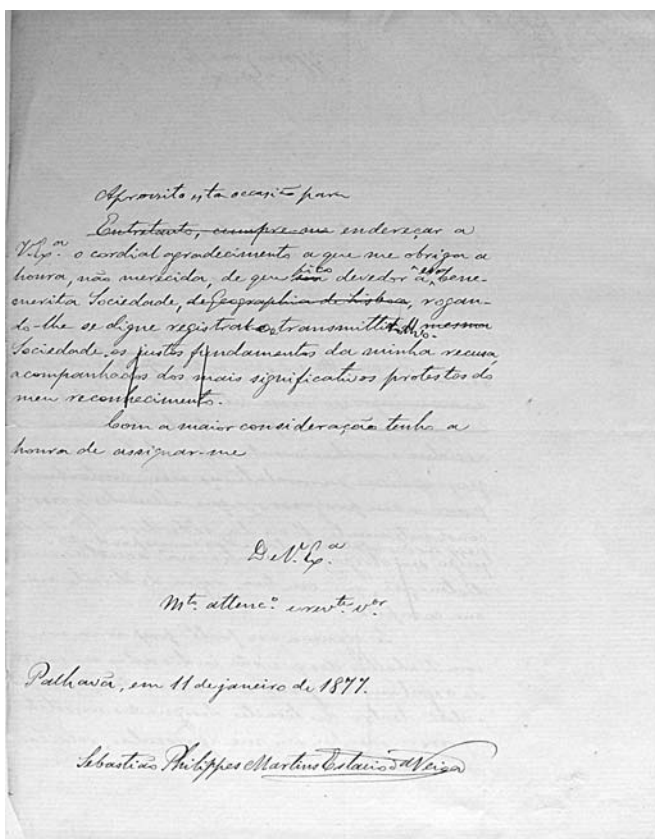 Aproveito esta occasião para
Entretanto, cumpre-me endereçar a
V. Ex.ª o cordial agradecimento a que me obriga a
honra, não merecida, de que fico devedor á essa bene-
merita Sociedade, de Geographia de Lisboa, rogan-
do-lhe se digne registrar e transmittir á mesma
Sociedade os justos fundamentos da minha recusa,
acompanhados dos mais significativos protestos do
meu reconhecimento.
Com a maior consideração tenho a
honra de assignar-me
De V. Ex.ª
M.to attenc.o e rev.te v.or
Palhavã, em 11 de janeiro de 1877.
Sebastião Philippes Martins Estacio da Veiga